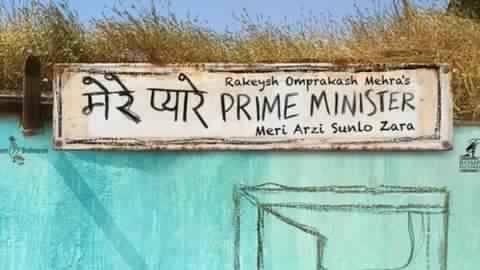 Rakeysh Omprakash Mehra's
मेरे प्यारे PRIME MINISTER
Meri Arzi Sunlo Zara